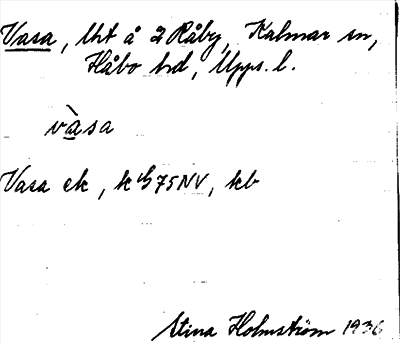 Vasa, lht å 2 Råby, Kalmar sn,
Håbo hd, Upps. l.
vàsa
Vasa ek, k 75NV, kb
Stina Holmström 1936